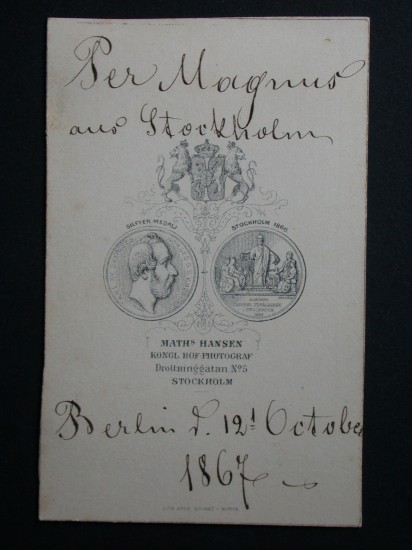 Per Magnus
aus Stockholm
SILFVER-MEDALJ
STOCKHOLM 1866
MATHS HANSEN
KONGL HOF-PHOTOGRAF
Drottninggatan No 5
STOCKHOLM
Berlin d. 12t October
1867